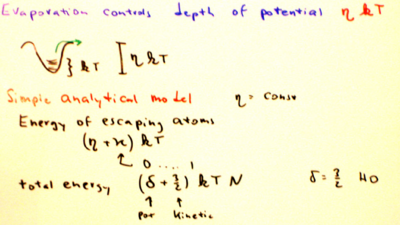 Evaporation controls depth of potential η kT
} kT [ η kT
Simple analytical model η = const
Energy of escaping atoms
(η + κ) kT
0 .... 1
total energy (δ + 3/2) kT N δ = 3/2 HO
pot kinetic